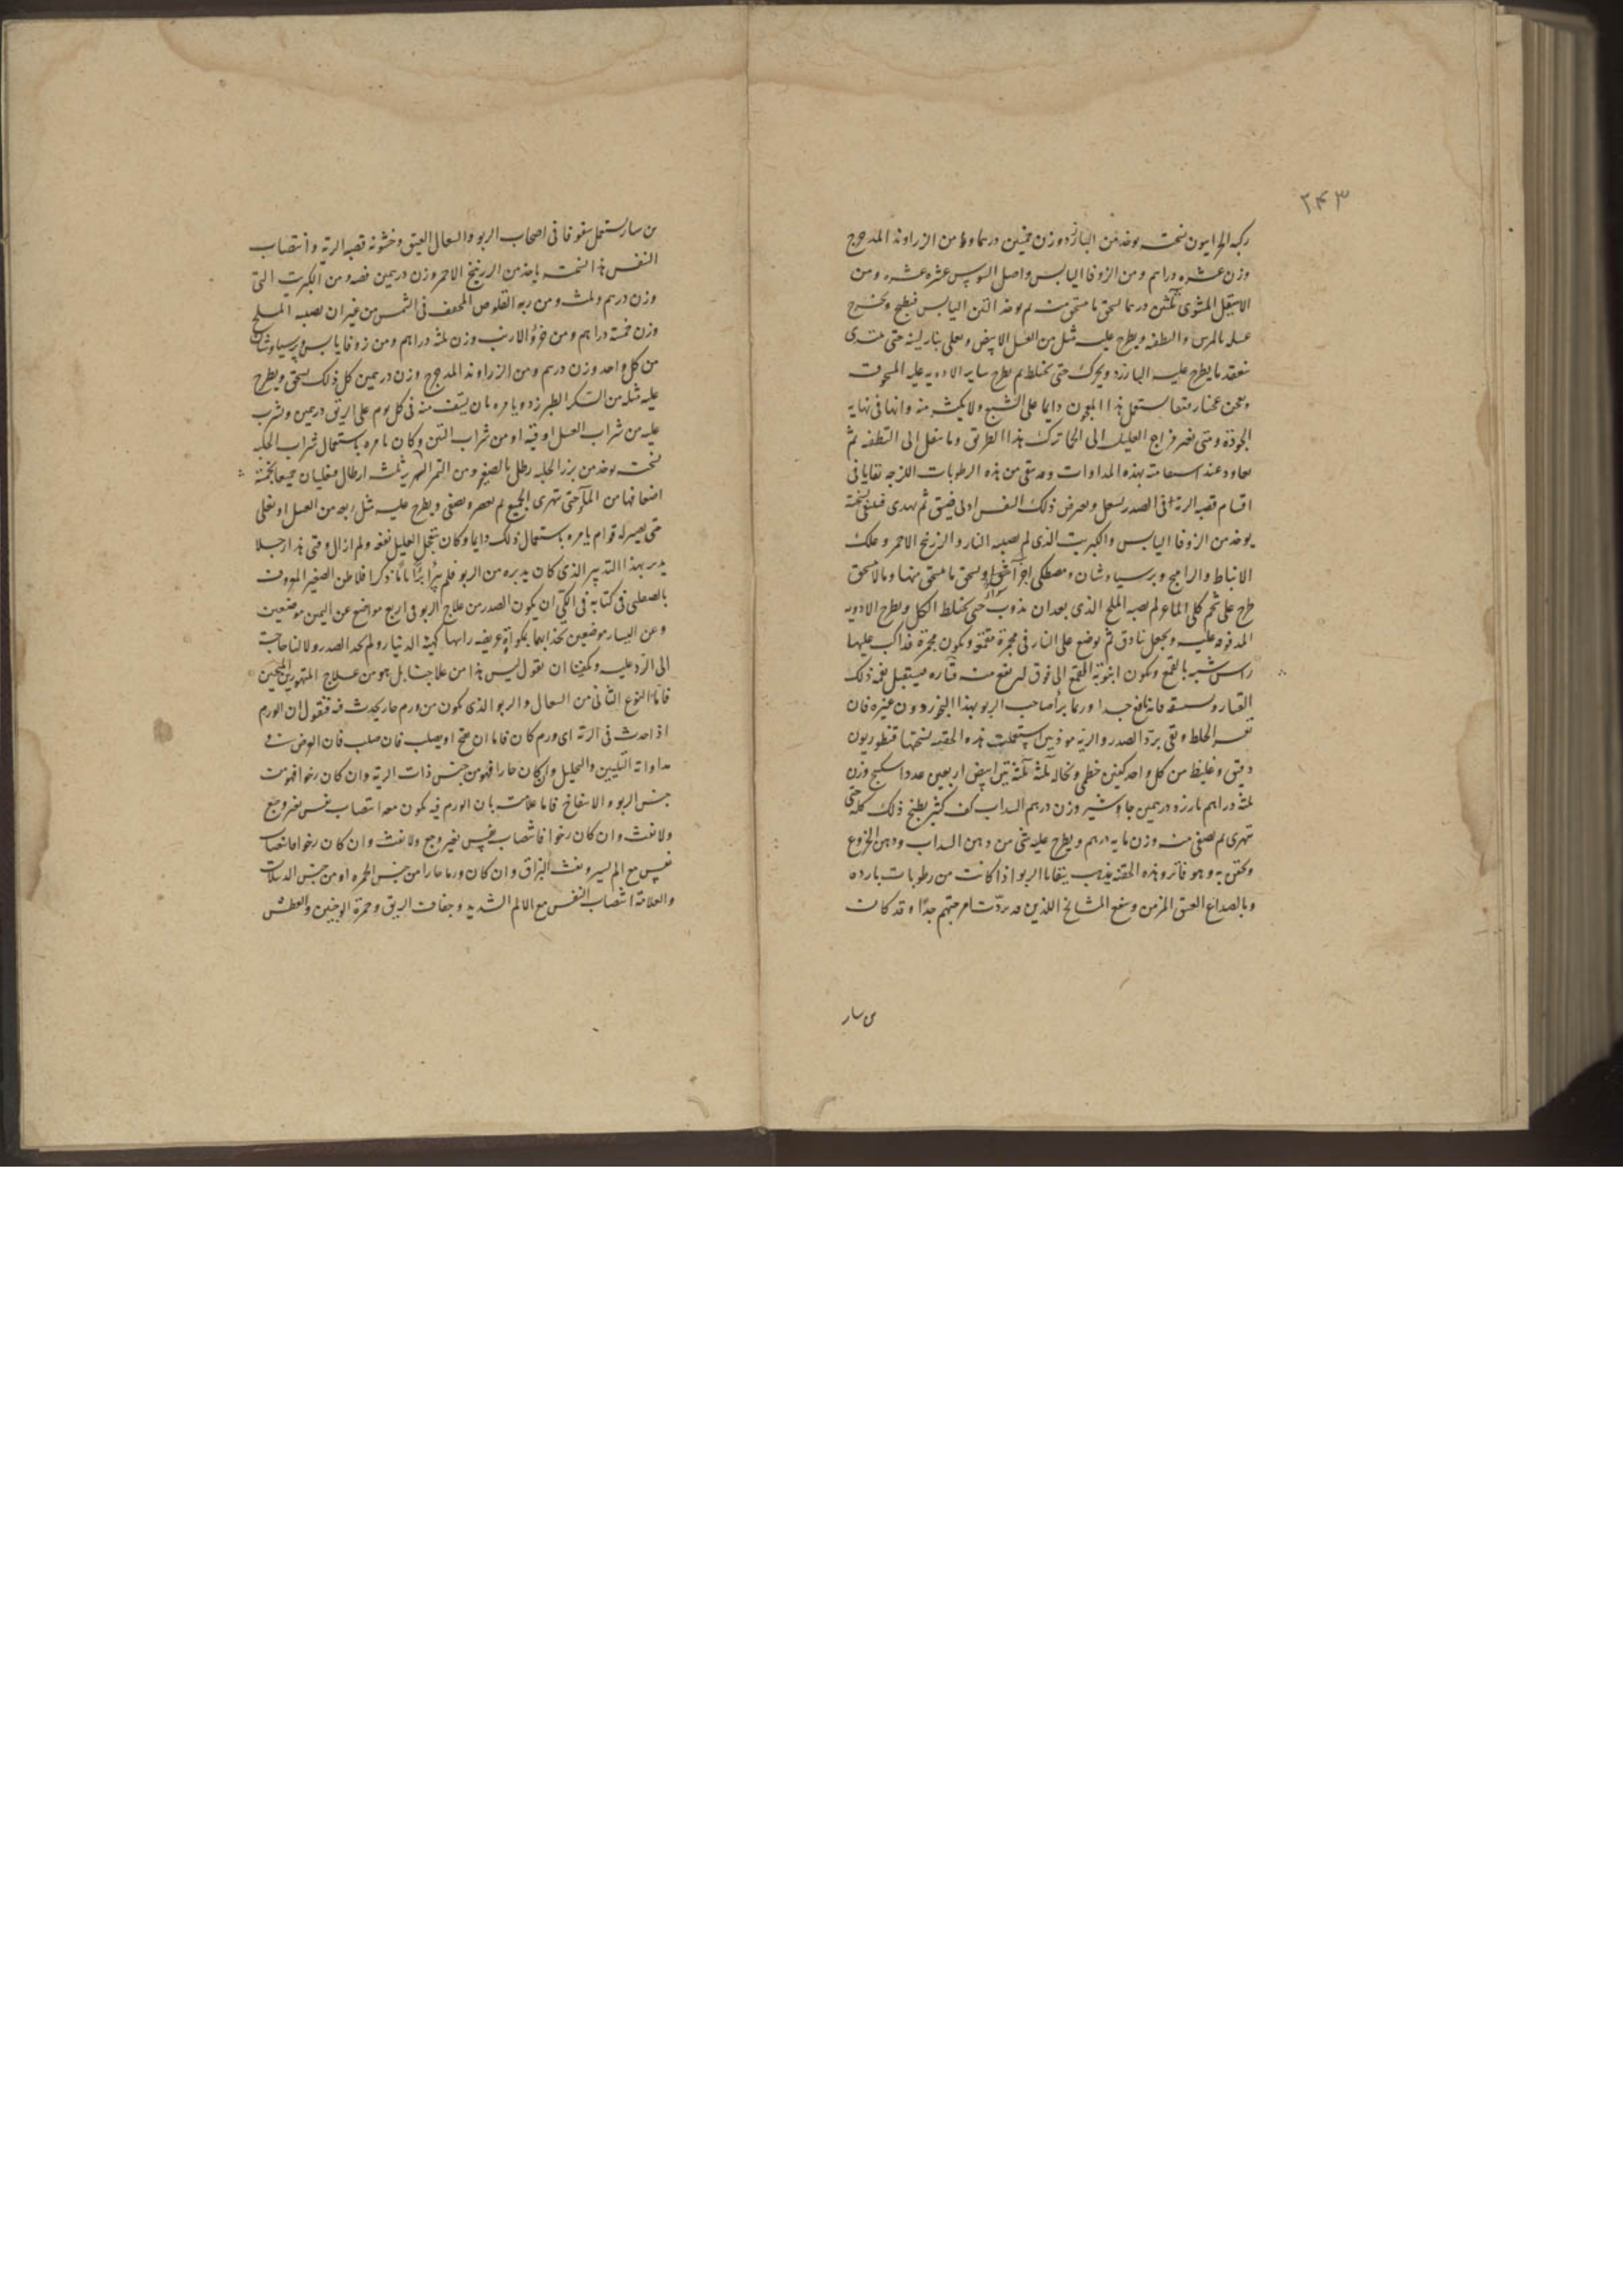 ٢٤٣
ركبه الحرانيون نسخته يوخذ من البارزد وزن خمسين درهما ومن الزراوند المدحرج
وزن عشره دراهم ومن الزوفا اليابس واصل السوس عشره عشره ومن
الاسقيل المشوى ثلثين درهما يسحق ما يسحق منه ثم يوخذ التين اليابس فيطبخ ويخرج
عسله بالمرس والطفه ويطرح عليه مثله من العسل الابيض ويغلى بنار لينه حتى يبتدى
ينعقد ما يطرح عليه البارزد ويحرك حتى يختلط ثم يطرح ساير الادويه عليه المسحوقه
ويعجن يستعمل هذا المعجون دايما على الشبع ولا يكثر منه وانها فى نهايه
الجودة ومتى تغير مزاج العليل الى الحار ترك هذا الطريق وما ينقل الى التطفئه ثم
يعاود عند استقامته بهذه المداوات وقد بقى من هذه الرطوبات اللزجه بقايا فى
اقسام قصبه الرئة فى الصدر يسعل ويعرض ذلك النفس اولى فيضيق ثم يهدى فينفى نسخة
يوخذ من الزوفا اليابس والكبريت الذى لم يصبه النار والزرنيخ الاحمر وعلك
الانباط والراتينج وبرسياوشان ومصطكى اجزآ سوا ويسحق ما يسحق منها وما لا يسحق
طرح على شحم كلى الماعز لم يصبه الملح الذى بعد ان يذوب حتى يختلط الكل ويطرح الادويه
المدقوقه عليه ويجعل بنادق ثم يوضع على النار فى مجمرة مقمعة ويكون مجمرة قد اكب عليها
راس شبيه بالقمع ويكون انبوبة القمع الى فوق ليرتفع منه قتاره فيستقبل بفمه ذلك
القتار ويستنشقه فانه نافع جدا وربما برأ صاحب الربو بهذا البخور دون غيره فان
تغير الخلط وبقى برد الصدر والريه موذيين استعملت هذه الحقنه نسختها قنطوريون
دقيق وغليظ من كل واحد كفين خطمى ونخاله ثلثة ثلثة تين ابيض اربعين عددا سكبينج وزن
ثلثة دراهم بارزد درهمين جاوشير وزن درهم السداب كف كثير يطبخ ذلك كله حتى
يتهرى ثم يصفى منه وزن مايه درهم ويطرح عليه شى من دهن السداب ودهن الخروع
ويحقن به وهو فاتر وهذه الحقنه يذهب ببقايا الربو اذا كانت من رطوبات بارده
وبالصداع العتيق المزمن وينفع المشايخ اللذين قد بردت امزجتهم جدا وقد كانت
بن سار
بن سار يستعمل سفوفا فى اصحاب الربو والسعال العتيق وخشونة قصبه الرية وانتصاب
النفس هذا نسخته ياخذ من الزرنيخ الاحمر وزن درهمين فضه ومن الكبريت التى
وزن درهم وثلث ومن ريه القلوص المجفف فى الشمس من غير ان يصبه الملح
وزن خمسة دراهم ومن خرؤ الارنب وزن ثلثة دراهم ومن زوفا يابس وبرسياوشان
من كل واحد وزن درهم ومن الزراوند المدحرج وزن درهمين كل ذلك يسحق ويطرح
عليه مثله من السكر الطبرزد ويامره بان يستف منه فى كل يوم على الريق درهمين ويشرب
عليه من شراب العسل اوقيه او من شراب التين وكان يامره باستعمال شراب الحلبه
نسخته يوخذ من بزر الحلبه رطل بالصغير ومن التمر ثلثه ارطال فيغليان جميعا بخمسة
اضعافها من المآء حتى يتهرى الجميع ثم يعصر ويصفى ويطرح عليه مثل ربعه من العسل او يغلى
حتى يصير له قوام يامره باستعمال ذلك دايما وكان يتعجل العليل نفعه ولم ازال وقتى هذا رجلا
يدبر بهذا التدبير الذى كان يدبره من الربو فلم يبرأ برأ تاما ذكر افلاطن الصغير المعروف
بالصقلى فى كتابه فى الكى ان يكون الصدر من علاج الربو فى اربع مواضع عن اليمين موضعين
وعن اليسار موضعين بحذايهما بمكواة عريضه راسها كهيئة الدينار ولم يحد الصدر ولا لنا حاجة
الى الرد عليه ويكفينا ان نقول ليس هذا من علاجنا بل هو من علاج المتهورين المحبين
فاما النوع الثانى من السعال والربو الذى يكون من ورم حار يحدث فيه فنقول ان الورم
اذا حدث فى الرئة اى ورم كان فاما ان يفتح او يصلب فان صلب فان الغرض فى
مداواته التليين والتحليل وان كان حارا فهو من جنس ذات الرية وان كان رخوا فهو من
جنس الربو والانتفاخ فاما علامته بان الورم فيه يكون معه انتصاب نفس بغير وجع
ولا نفث وان كان رخوا فانتصاب نفس بغير وجع ولا نفث وان كان رخوا فانتصاب
نفس مع الم يسير ونفث البزاق وان كان ورما حارا من جنس الحمره او من جنس الدبيلات
والعلامة انتصاب النفس مع الالم الشديد وجفاف الريق وحمرة الوجنتين والعطش